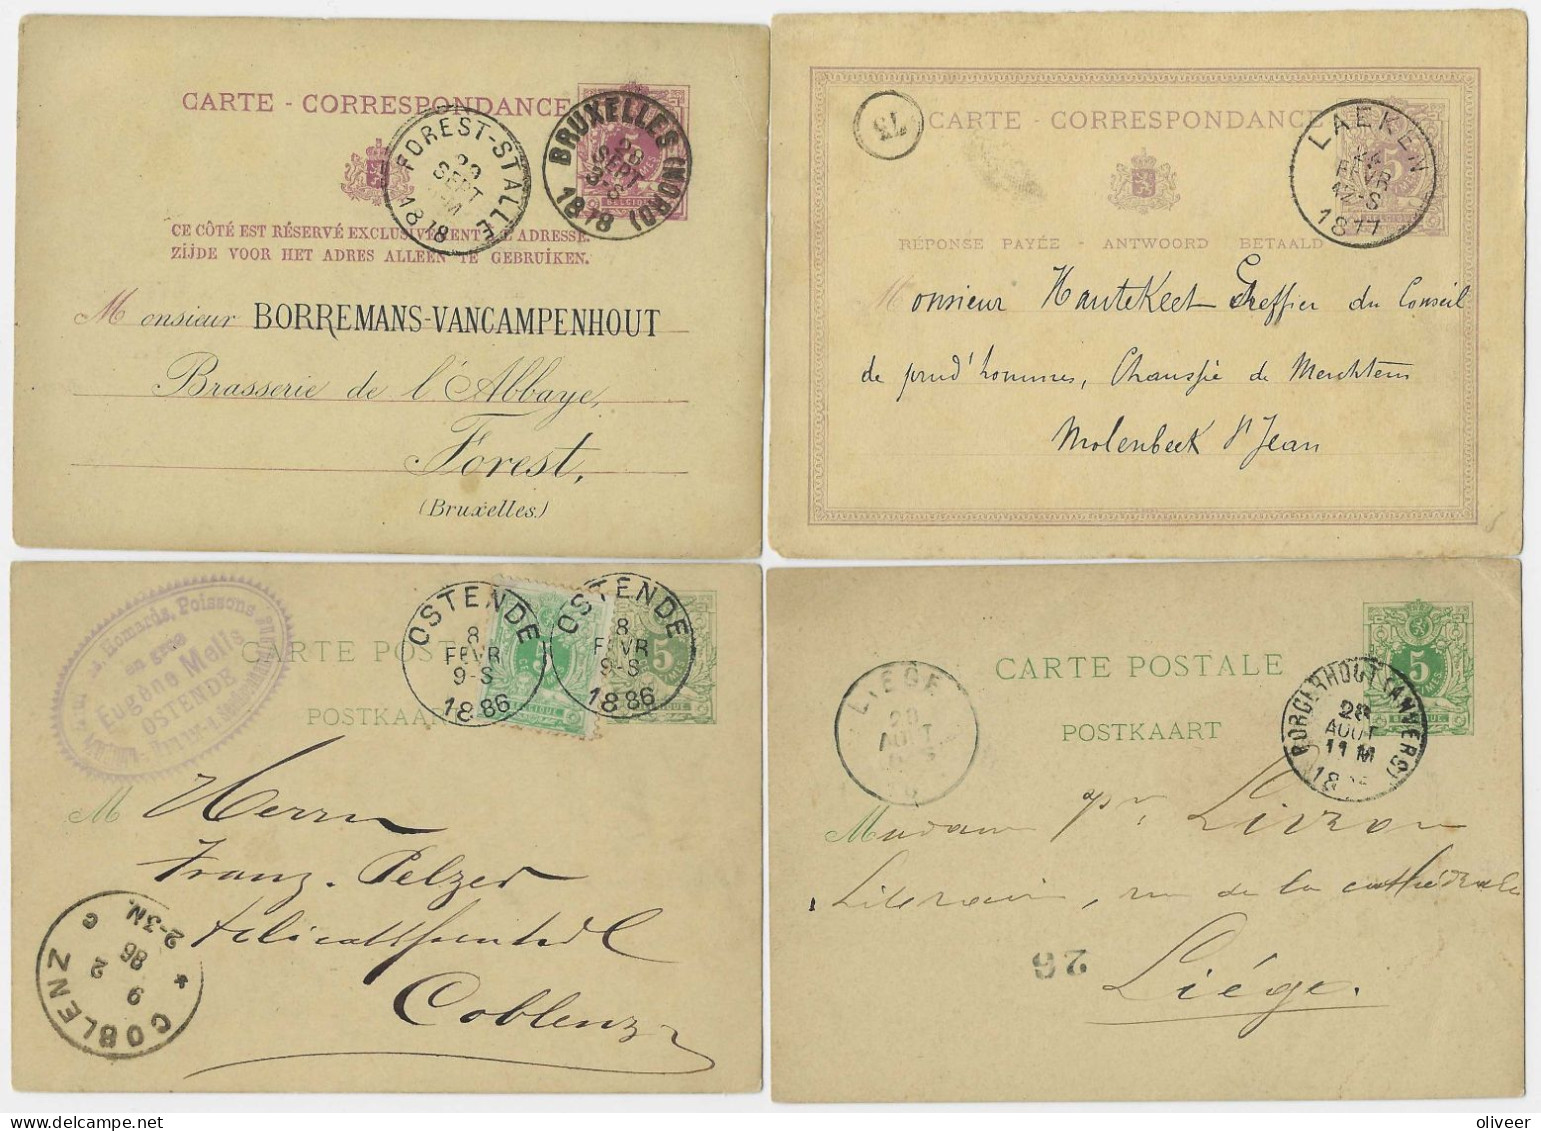 CARTE - CORRESPONDANCE
FOREST-STALLE
SEPT
1878
BRUXELLES (NORD)
28
SEPT
3-S
1878
BELGIQUE
CE CÔTÉ EST RÉSERVÉ EXCLUSIVEMENT À L'ADRESSE.
ZIJDE VOOR HET ADRES ALLEEN TE GEBRUIKEN.
Monsieur BORREMANS-VANCAMPENHOUT
Brasserie de l'Abbaye,
Forest,
(Bruxelles.)
73
CARTE - CORRESPONDANCE
LAEKEN
12-S
1877
5
RÉPONSE PAYÉE - ANTWOORD BETAALD
Monsieur Hautekeet Greffier du Conseil
de prud'hommes, Chaussée de Merchtem
Molenbeek St Jean
Homards, Poissons
en gros
Eugène Melis
OSTENDE
CARTE POSTALE
POSTKAART
OSTENDE
8
FEVR
9-S
1886
OSTENDE
8
FEVR
9-S
1886
5
M Herrn
Franz Pelzer
Coblenz
COBLENZ
9 2
86
2-3N.
CARTE POSTALE
POSTKAART
5
LIEGE
28
AOUT
BORGERHOUT (ANVERS)
28
AOUT
11 M
Madame Livron
rue de la cathédrale
Liége.
26
oliveer